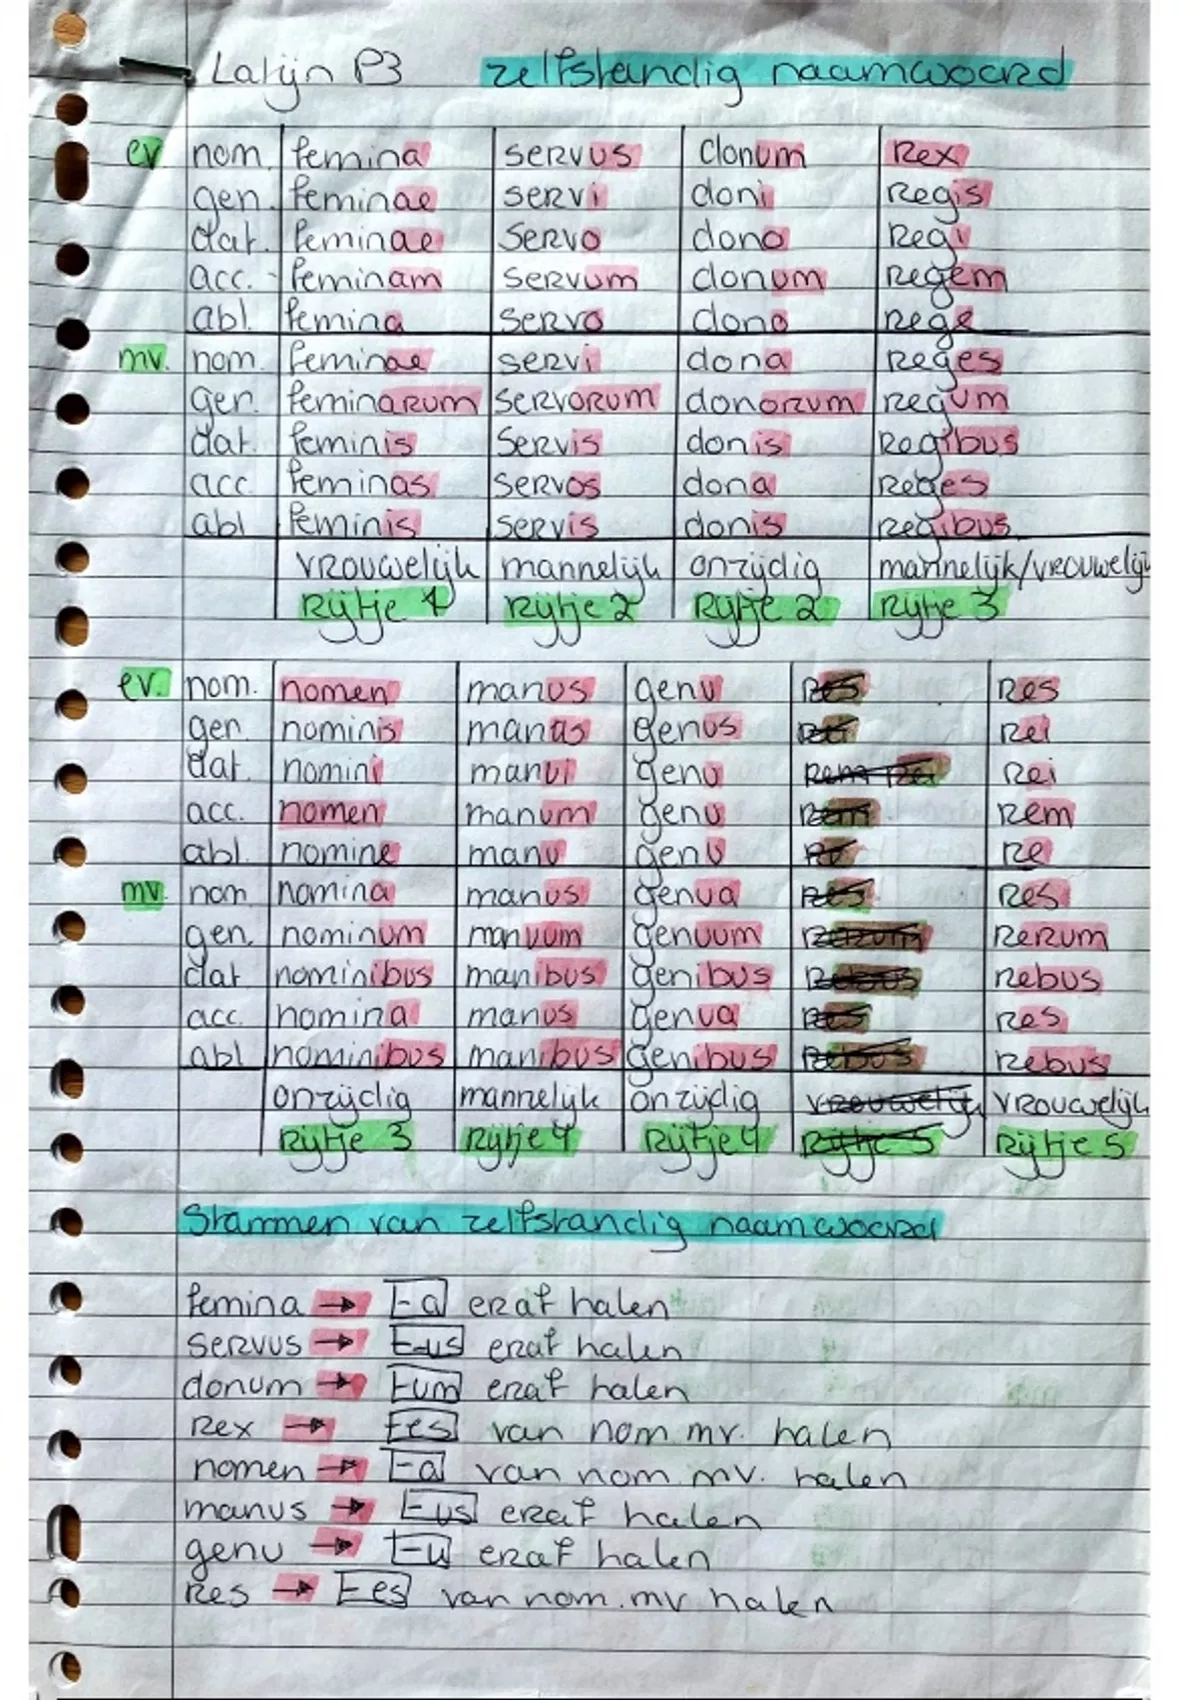 Latijn P3 zelfstandig naamwoord
ev nom. femina servus donum Rex
gen. feminae servi doni Regis
dat. feminae servo dono Regi
acc. feminam servum donum regem
abl. femina servo dono rege
mv. nom. feminae servi dona Reges
gen. feminarum servorum donorum regum
dat. feminis servis donis Regibus
acc feminas servos dona Reges
abl feminis servis donis regibus
vrouwelijk mannelijk onzijdig mannelijk/vrouwelijk
Rijtje 1 Rijtje 2 Rijtje 2 Rijtje 3
ev. nom. nomen manus genu Res Res
gen. nominis manus genus Rei Rei
dat. nomini manui genu Rem Rei Rei
acc. nomen manum genu Rem Rem
abl. nomine manu genu Re Re
mv. nom. nomina manus genua Res Res
gen. nominum manuum genuum Rerum Rerum
dat nominibus manibus genibus Rebus Rebus
acc. nomina manus genua Res Res
abl nominibus manibus genibus Rebus Rebus
onzijdig mannelijk onzijdig vrouwelijk vrouwelijk
Rijtje 3 Rijtje 4 Rijtje 4 Rijtje 5 Rijtje 5
Stammen van zelfstandig naamwoord
femina → -a eraf halen
servus → -us eraf halen
donum → -um eraf halen
Rex → -es van nom. mv. halen
nomen → -a van nom. mv. halen
manus → -us eraf halen
genu → -u eraf halen
Res → -es van nom. mv halen